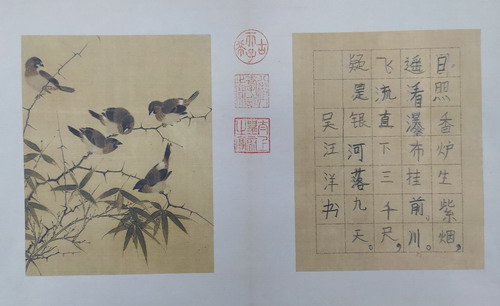 日照香炉生紫烟，
遥看瀑布挂前川。
飞流直下三千尺，
疑是银河落九天。
吴江洋书